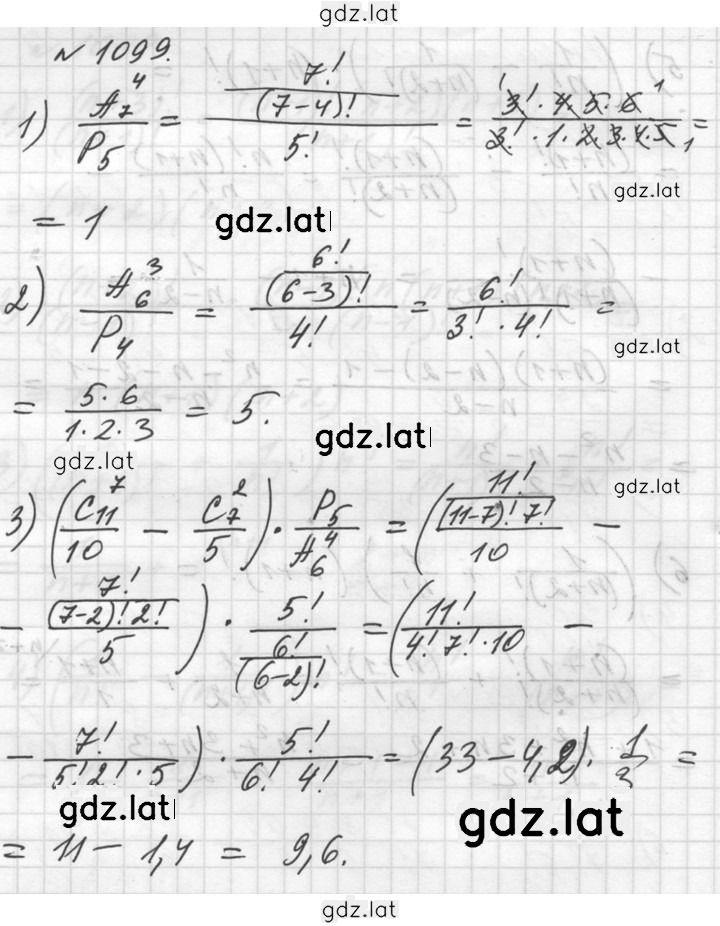 gdz.lat
№ 1099.
1) A₇⁴/P₅ = (7!/(7-4)!)/5! = (3!·4·5·6)/(3!·1·2·3·4·5) =
gdz.lat
= 1 gdz.lat
2) A₆³/P₄ = (6!/(6-3)!)/4! = 6!/(3!·4!) =
gdz.lat
= (5·6)/(1·2·3) = 5.
gdz.lat
gdz.lat
gdz.lat
3) (C₁₁⁷/10 - C₇²/5) · P₅/A₆⁴ = ((11!/((11-7)!7!))/10 -
- (7!/((7-2)!2!))/5) · 5!/(6!/(6-2)!) = (11!/(4!7!·10) -
- 7!/(5!2!·5)) · 5!/(6!4!) = (33-4,2)·1/3 =
gdz.lat
gdz.lat
= 11 - 1,4 = 9,6.
gdz.lat